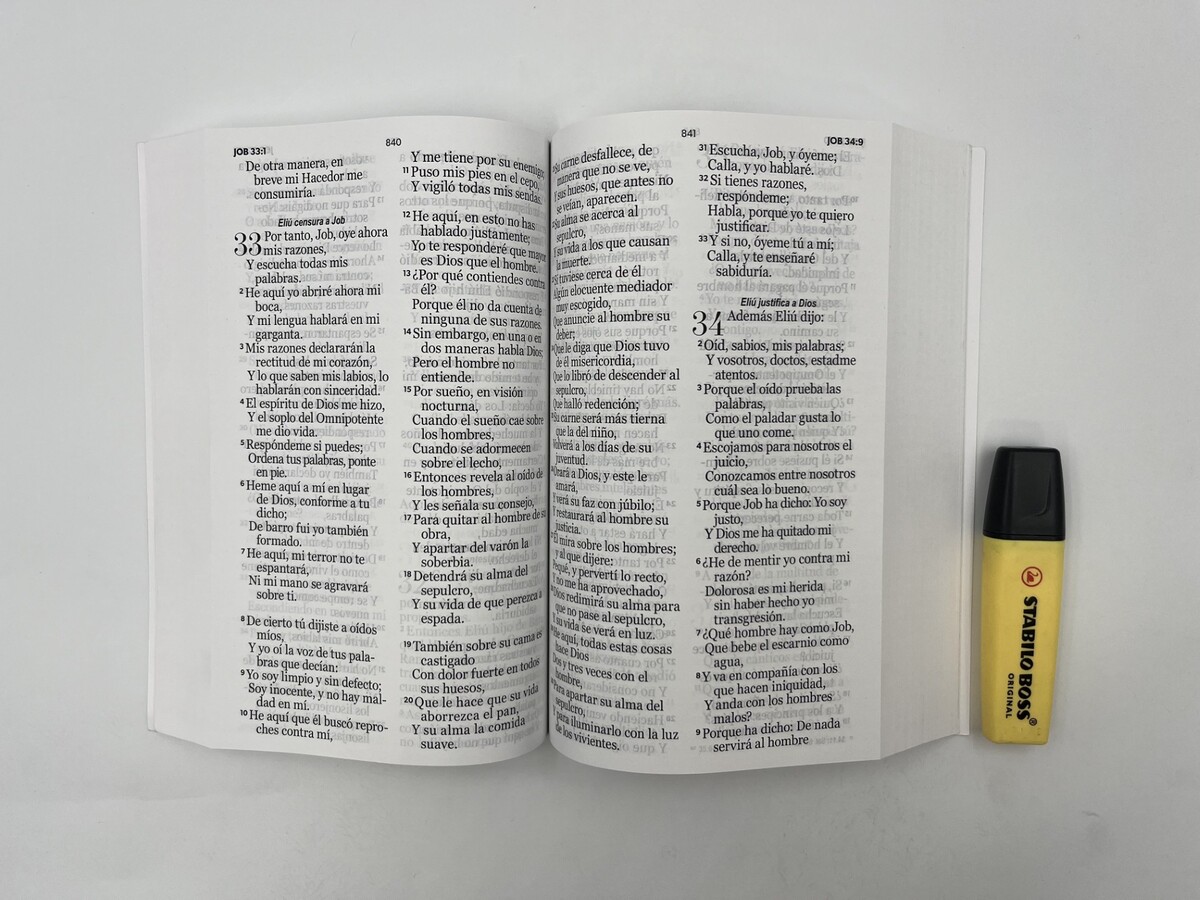 JOB 33:1
840
De otra manera, en
breve mi Hacedor me
consumiría.
Eliú censura a Job
33 Por tanto, Job, oye ahora
mis razones,
Y escucha todas mis
palabras.
2 He aquí yo abriré ahora mi
boca,
Y mi lengua hablará en mi
garganta.
3 Mis razones declararán la
rectitud de mi corazón,
Y lo que saben mis labios, lo
hablarán con sinceridad.
4 El espíritu de Dios me hizo,
Y el soplo del Omnipotente
me dio vida.
5 Respóndeme si puedes;
Ordena tus palabras, ponte
en pie.
6 Heme aquí a mí en lugar
de Dios, conforme a tu
dicho;
De barro fui yo también
formado.
7 He aquí, mi terror no te
espantará,
Ni mi mano se agravará
sobre ti.
8 De cierto tú dijiste a oídos
míos,
Y yo oí la voz de tus pala-
bras que decían:
9 Yo soy limpio y sin defecto;
Soy inocente, y no hay mal-
dad en mí.
10 He aquí que él buscó repro-
ches contra mí,
Y me tiene por su enemigo;
11 Puso mis pies en el cepo,
Y vigiló todas mis sendas.
12 He aquí, en esto no has
hablado justamente;
Yo te responderé que mayor
es Dios que el hombre.
13 ¿Por qué contiendes contra
él?
Porque él no da cuenta de
ninguna de sus razones.
14 Sin embargo, en una o en
dos maneras habla Dios;
Pero el hombre no
entiende.
15 Por sueño, en visión
nocturna,
Cuando el sueño cae sobre
los hombres,
Cuando se adormecen
sobre el lecho,
16 Entonces revela al oído de
los hombres,
Y les señala su consejo,
17 Para quitar al hombre de su
obra,
Y apartar del varón la
soberbia.
18 Detendrá su alma del
sepulcro,
Y su vida de que perezca a
espada.
19 También sobre su cama es
castigado
Con dolor fuerte en todos
sus huesos,
20 Que le hace que su vida
aborrezca el pan,
Y su alma la comida
suave.
841
JOB 34:9
Su carne desfallece, de
manera que no se ve,
Y sus huesos, que antes no
se veían, aparecen.
Su alma se acerca al
sepulcro,
Y su vida a los que causan
la muerte.
Si tuviese cerca de él
Algún elocuente mediador
muy escogido,
Que anuncie al hombre su
deber;
Que le diga que Dios tuvo
de él misericordia,
Que lo libró de descender al
sepulcro,
Que halló redención;
Su carne será más tierna
que la del niño,
Volverá a los días de su
juventud.
Orará a Dios, y este le
amará,
Y verá su faz con júbilo;
Y restaurará al hombre su
justicia.
Él mira sobre los hombres;
y al que dijere:
Pequé, y pervertí lo recto,
Y no me ha aprovechado,
Dios redimirá su alma para
que no pase al sepulcro,
Y su vida se verá en luz.
He aquí, todas estas cosas
hace Dios
Dos y tres veces con el
hombre,
Para apartar su alma del
sepulcro,
Y para iluminarlo con la luz
de los vivientes.
31 Escucha, Job, y óyeme;
Calla, y yo hablaré.
32 Si tienes razones,
respóndeme;
Habla, porque yo te quiero
justificar.
33 Y si no, óyeme tú a mí;
Calla, y te enseñaré
sabiduría.
Eliú justifica a Dios
34 Además Eliú dijo:
2 Oíd, sabios, mis palabras;
Y vosotros, doctos, estadme
atentos.
3 Porque el oído prueba las
palabras,
Como el paladar gusta lo
que uno come.
4 Escojamos para nosotros el
juicio,
Conozcamos entre nosotros
cuál sea lo bueno.
5 Porque Job ha dicho: Yo soy
justo,
Y Dios me ha quitado mi
derecho.
6 ¿He de mentir yo contra mi
razón?
Dolorosa es mi herida
sin haber hecho yo
transgresión.
7 ¿Qué hombre hay como Job,
Que bebe el escarnio como
agua,
8 Y va en compañía con los
que hacen iniquidad,
Y anda con los hombres
malos?
9 Porque ha dicho: De nada
servirá al hombre
STABILO BOSS®
ORIGINAL